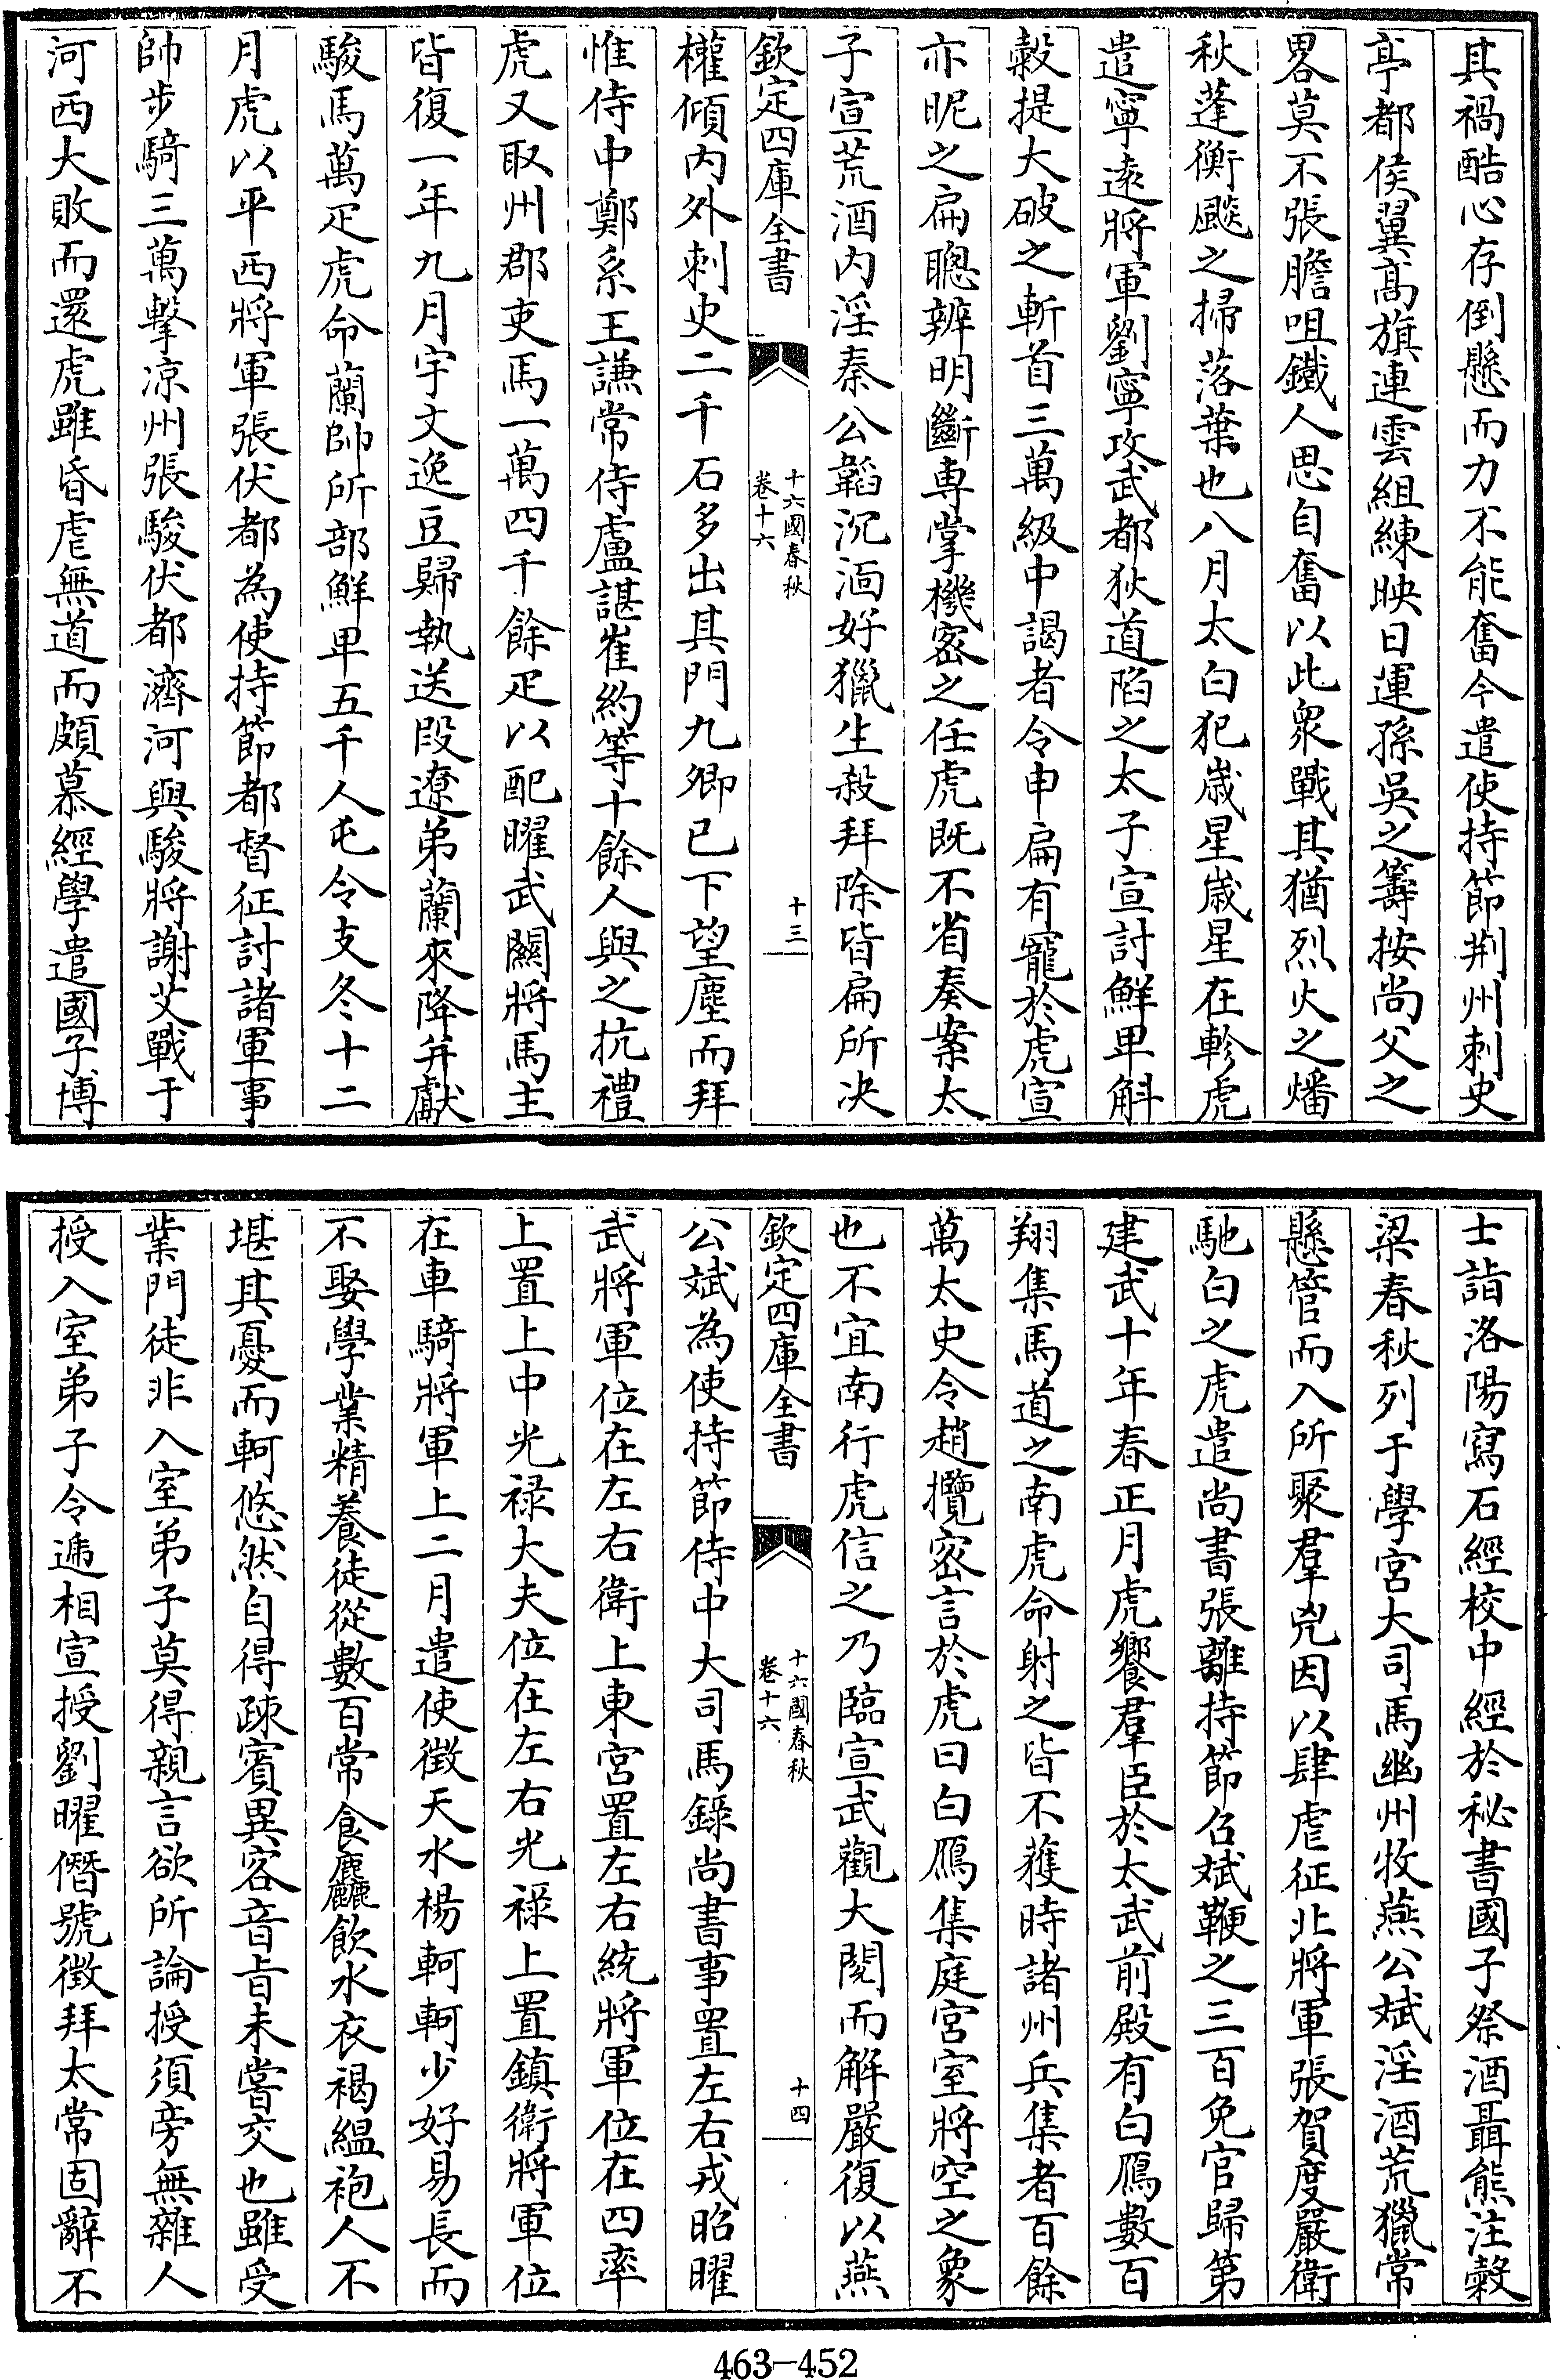 其禍酷心存倒懸而力不能奮今遣使持節荆州刺史
亭都侯翼髙旗連雲組練映日運孫吳之籌按尚父之
畧莫不張膽咀鐵人思自奮以此衆戰其猶烈火之燔
秋蓬衡飈之掃落葉也八月太白犯嵗星嵗星在軫虎
遣寧逺將軍劉寧攻武都狄道䧟之太子宣討鮮卑斛
榖提大破之斬首三萬級中謁者令申扁有寵於虎宣
亦昵之扁聰辨明斷專掌機密之任虎既不省奏案太
子宣荒酒内淫秦公韜沉湎好獵生殺拜除皆扁所决
欽定四庫全書
十六國春秋
卷十六
十三
權傾内外刺史二千石多出其門九卿已下望塵而拜
惟侍中鄭系王謙常侍盧諶崔約等十餘人與之抗禮
虎又取州郡吏馬一萬四千餘疋以配曜武關將馬主
皆復一年九月宇文逸豆歸執送段遼弟蘭來降并獻
駿馬萬疋虎命蘭帥所部鮮卑五千人屯令支冬十二
月虎以平西將軍張伏都為使持節都督征討諸軍事
帥步騎三萬擊凉州張駿伏都濟河與駿將謝艾戰于
河西大敗而還虎雖昏虐無道而頗慕經學遣國子博
士詣洛陽寫石經校中經於秘書國子祭酒聶熊注榖
梁春秋列于學宮大司馬幽州牧燕公斌淫酒荒獵常
懸管而入所聚羣兇因以肆虐征北將軍張賀度嚴衛
馳白之虎遣尚書張離持節召斌鞭之三百免官歸第
建武十年春正月虎饗羣臣於太武前殿有白鴈數百
翔集馬道之南虎命射之皆不獲時諸州兵集者百餘
萬太史令趙攬密言於虎曰白鴈集庭宮室將空之象
也不宜南行虎信之乃臨宣武觀大閱而解嚴復以燕
欽定四庫全書
十六國春秋
卷十六
十四
公斌為使持節侍中大司馬錄尚書事置左右戎昭曜
武將軍位在左右衛上東宮置左右統將軍位在四率
上置上中光禄大夫位在左右光禄上置鎮衛將軍位
在車騎將軍上二月遣使徵天水楊軻軻少好易長而
不娶學業精養徒從數百常食麤飲水衣褐縕袍人不
堪其憂而軻悠然自得疎賓異客音㫖未嘗交也雖受
業門徒非入室弟子莫得親言欲所論授須旁無雜人
授入室弟子令遞相宣授劉曜僭號徵拜太常固辭不
463-452